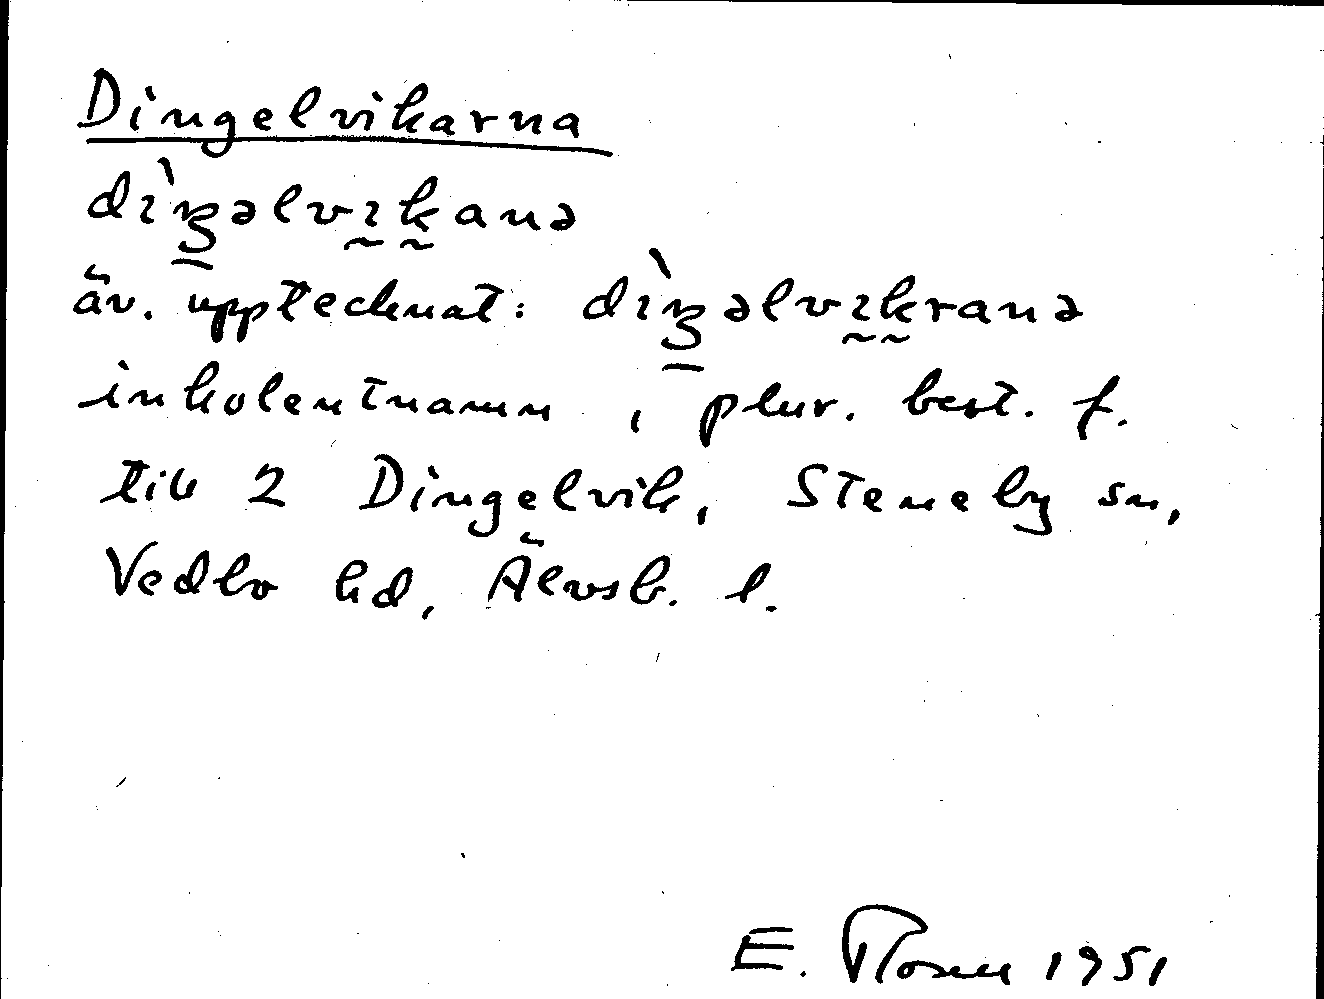 Dingelvikarna
dìŋəlvıkanə
äv. upptecknat: dìŋəlvıkranə
inkolentnamn, plur. best. f.
till 2 Dingelvik, Steneby sn,
Vedbo hd, Älvsb. l.
E. 1951